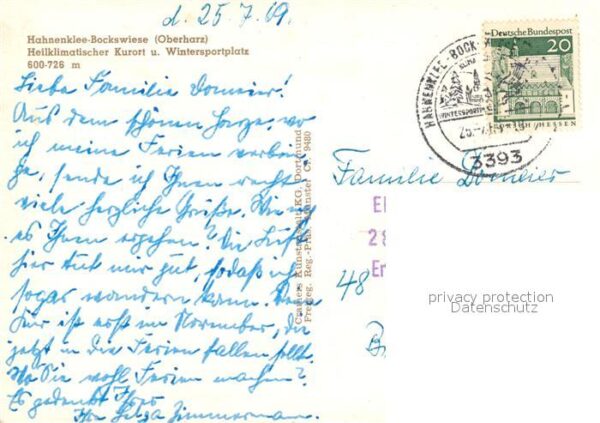 d. 25.7.69.
Hahnenklee-Bockswiese (Oberharz)
Heilklimatischer Kurort u. Wintersportplatz
600-726 m
Liebe Familie Domeier!
Aus dem schönen Harze, wo
ich meine Ferien verbrin-
ge, sende ich Ihnen recht
viele herzliche Grüße. Wie mag
es Ihnen ergehen? Die Luft
hier tut mir gut, sodaß ich
sogar wandern kann. Denn
Kur ist erst im November, die
jetzt in die Ferien fallen sollt.
Wo Sie wohl Ferien machen?
Es gedenkt Ihrer
Ihre Helga Zimmermann.
Cramers Kunstanstalt KG, Dortmund
Freigeg. Reg.-Präs. Münster Cr. 9480
Deutsche Bundespost
20
LORSCH/HESSEN
HAHNENKLEE-BOCK
WINTERSPORT
3393
Familie Domeier
E
2 8
En
48
B
privacy protection
Datenschutz